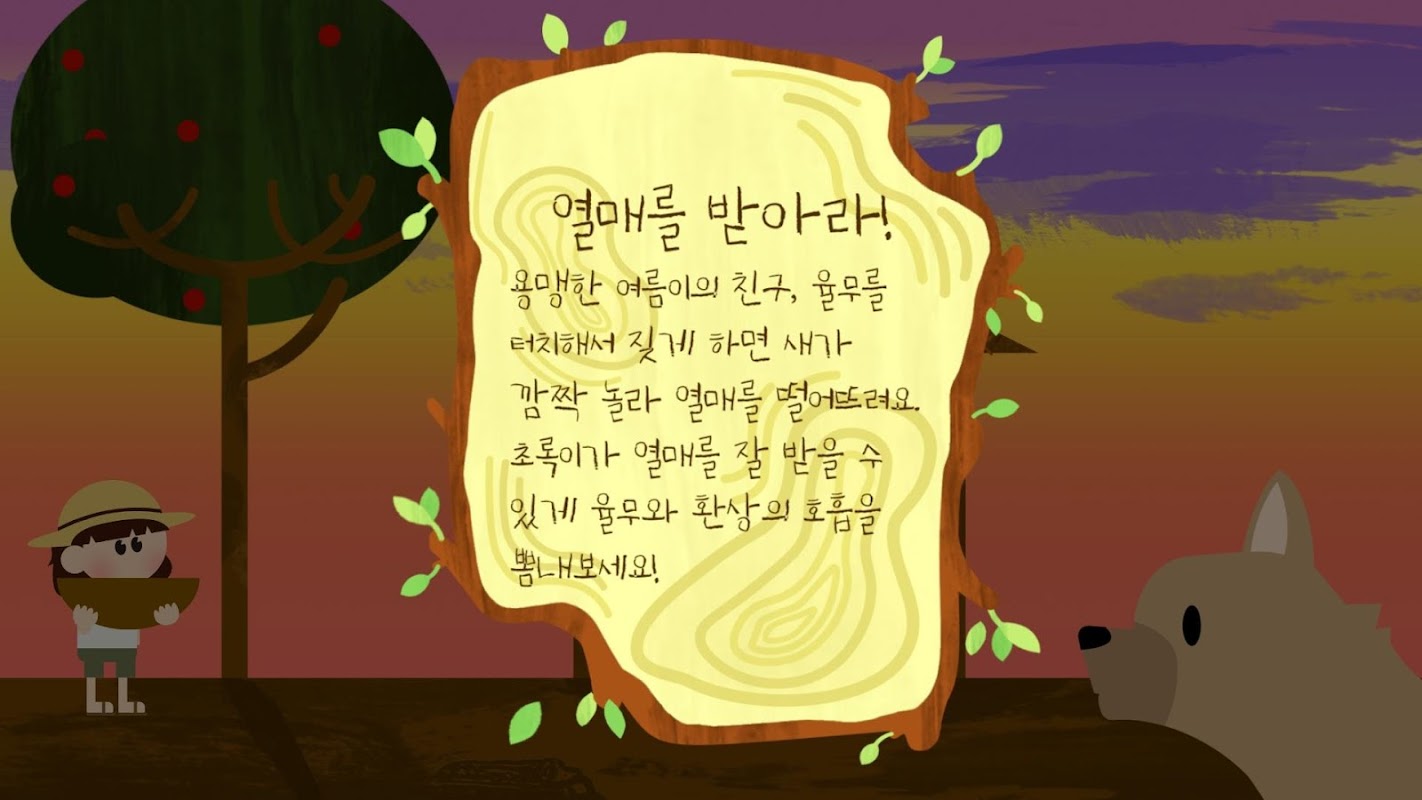 열매를 받아라!
용맹한 여름이의 친구, 율무를
터치해서 짖게 하면 새가
깜짝 놀라 열매를 떨어뜨려요.
초록이가 열매를 잘 받을 수
있게 율무와 환상의 호흡을
뽐내보세요!